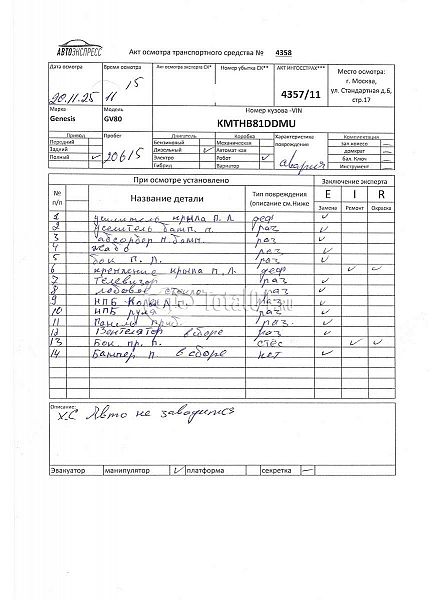 АВТОЭКСПРЕСС
Акт осмотра транспортного средства № 4358
Дата осмотра Время осмотра Акт осмотра эксперта СК* Номер убытка СК** АКТ ИНГОССТРАХ***
20.11.25 11 15 4357/11
Место осмотра:
г. Москва,
ул. Стандартная д.6,
стр.17
Марка Модель Номер кузова -VIN
Genesis GV80 KMTHB81DDMU
Привод Пробег Двигатель Коробка Характеристика повреждения Комплектация
Передний Бензиновый Механическая зап.колесо —
Задний Дизельный ✓ Автомат-кая домкрат —
Полный ✓ 20615 Электро Робот ✓ авария бал. Ключ —
Гибрид Вариатор Инструмент —
При осмотре установлено Заключение эксперта
№ п/п Название детали Тип повреждения (описание см.Ниже E I R
Замена Ремонт Окраска
1 усилитель крыла П.Л. деф ✓
2 уселитель бамп. п. раз ✓
3 абсорбер п. бамп. раз ✓
4 Жабо раз ✓
5 бок П.Л. раз ✓
6 крепление крыла П.Л. деф ✓ ✓
7 Телевизор раз ✓
8 лобовое стекло раз ✓
9 НПБ Колен Л раз ✓
10 НПБ руля раз ✓
11 Панель приб. раз. ✓
12 Вентелятор в сборе раз ✓
13 Бок. пр. стёс ✓ ✓
14 Бампер. п. в сборе нет ✓
Total
Описание:
Х.С Авто не заводится
Эвакуатор манипулятор ✓ платформа секретка —